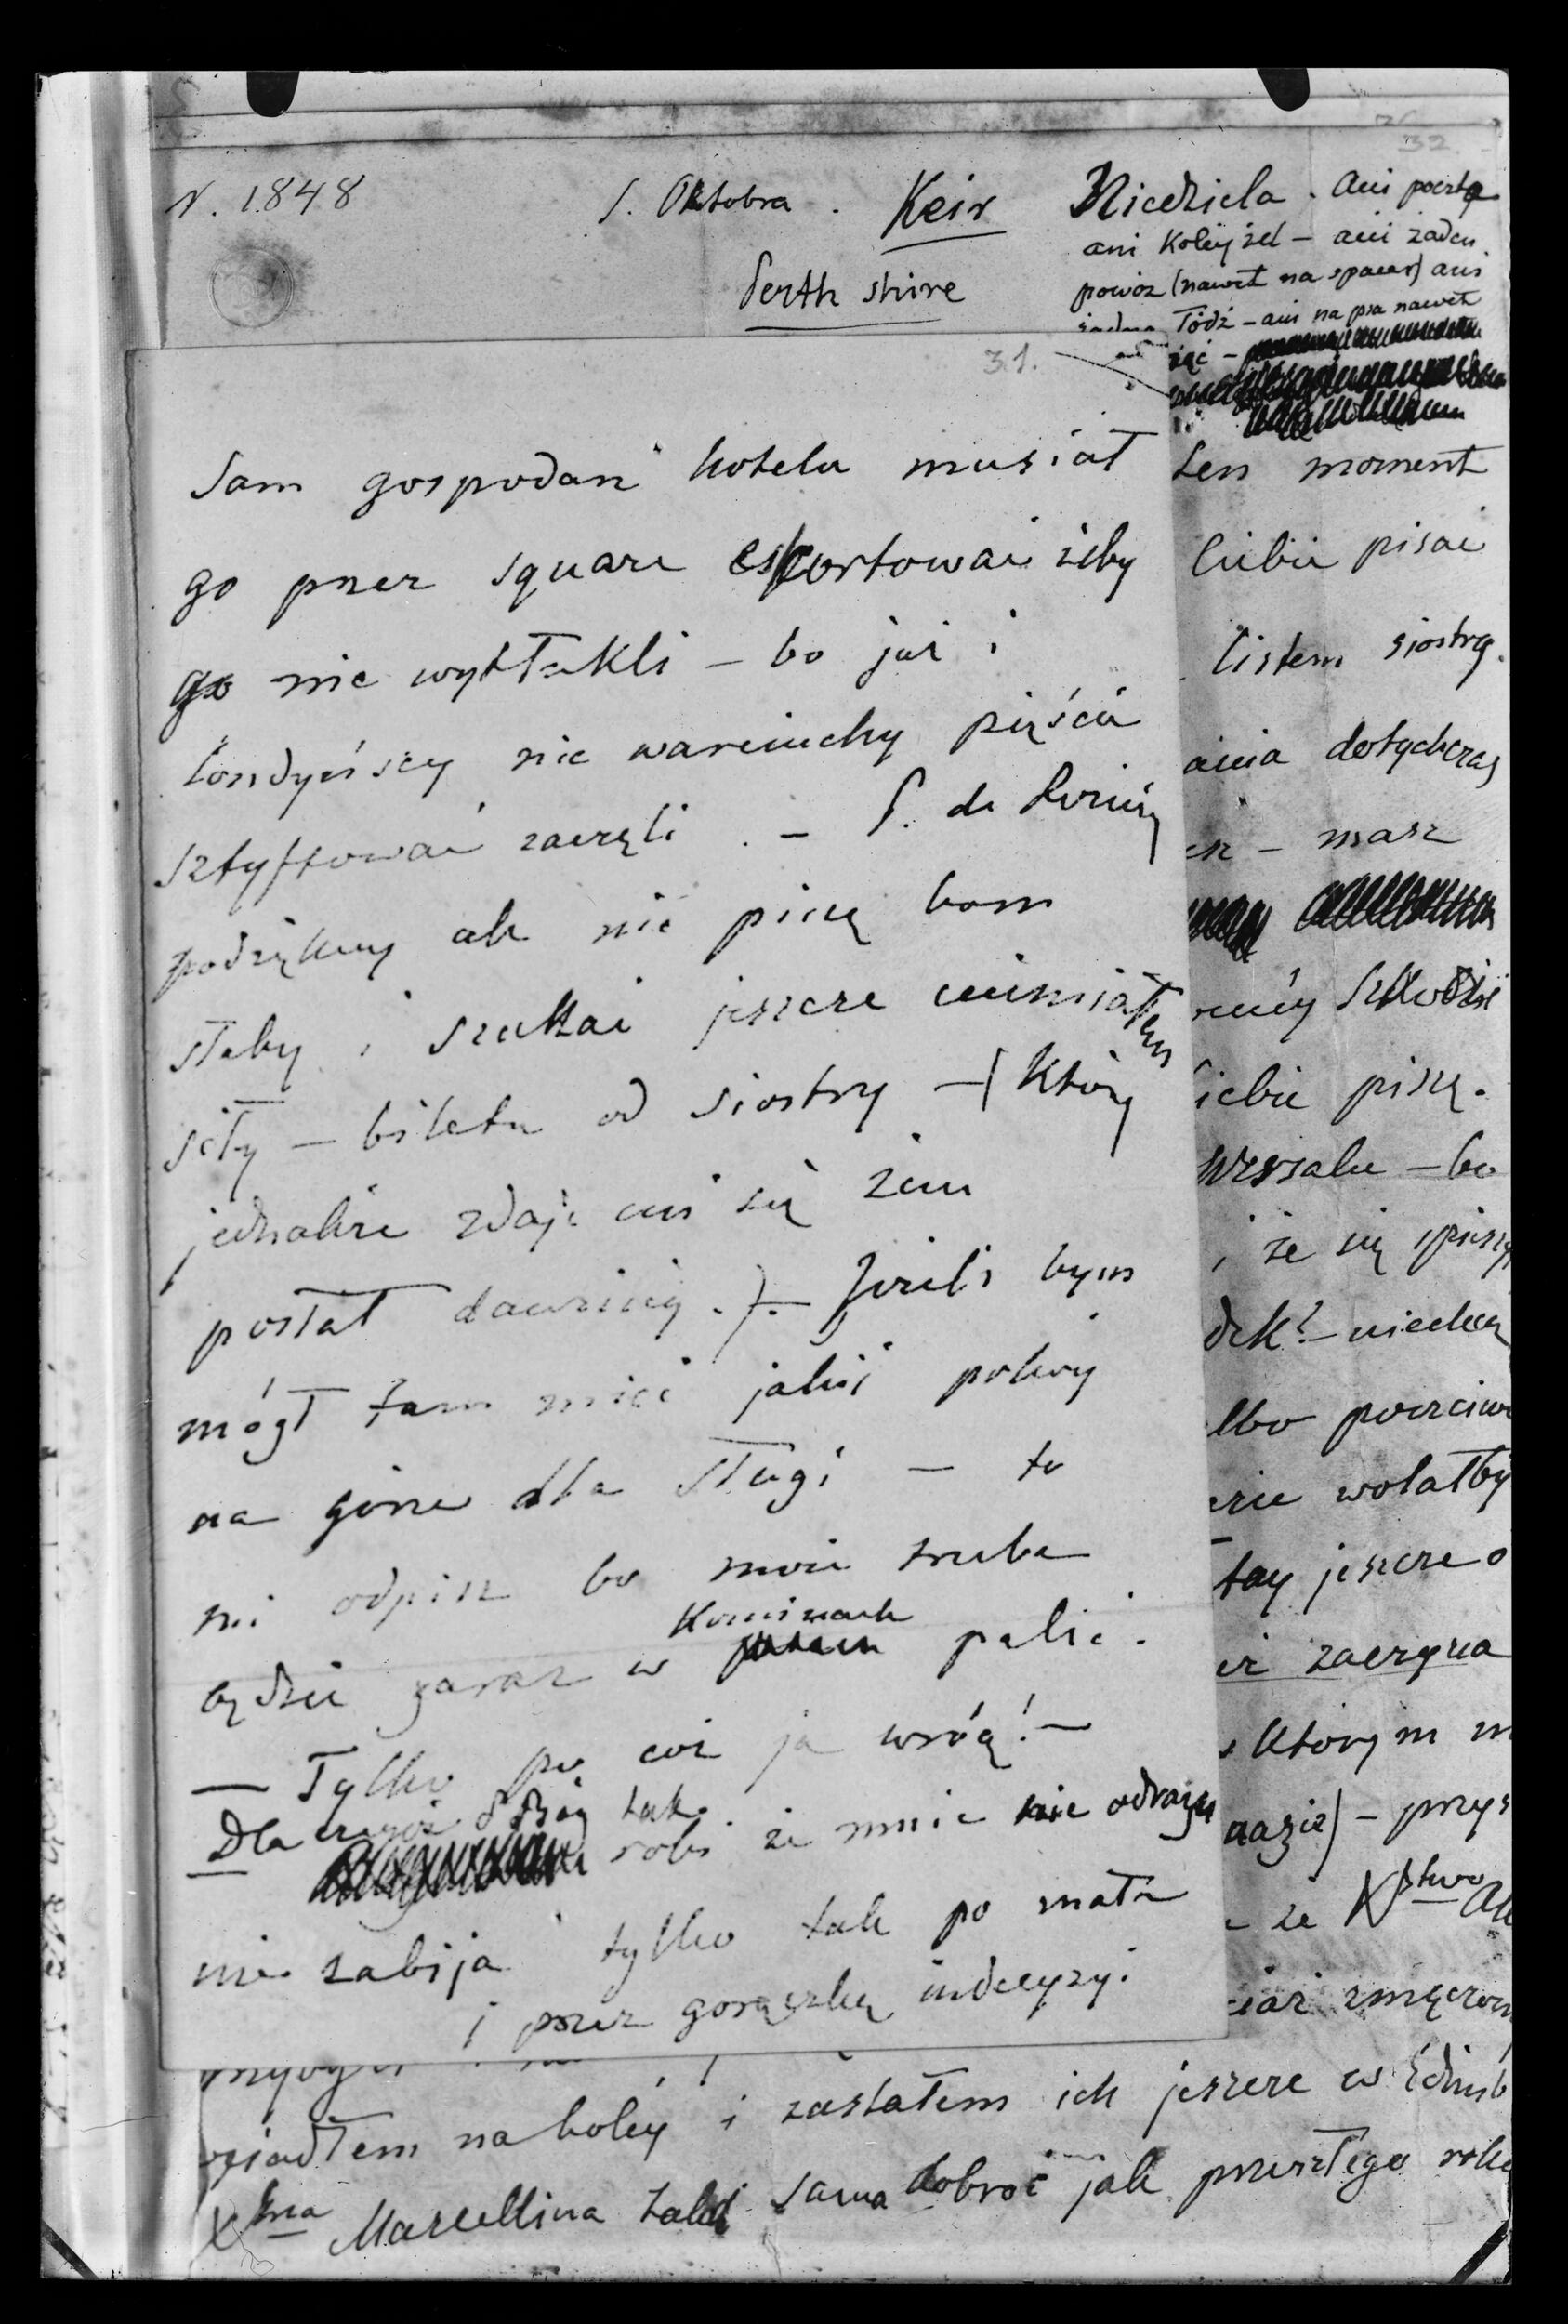 N. 1848
1. Oktobra. Keir
Perth shire
Niedziela. Ani poczty
ani Koley żel – ani żaden
powóz (nawet na spacer) ani
żadna łódź – ani na psa nawet
31.
32
Sam gospodarz hotelu musiał
go przez square eskortować żeby
go nie wytłukli – bo już i
londyńscy nic wareiuchy pięścią
sztyftować zaczęli. – P. de Rozièry
podziękuy ale nie piszę bom
słaby i szukać jeszcze niemiałem
siły – biletu od siostry – (Który
jednakże zdaje mi się żem
posłał dawniey.) – Jeżeli bym
mógł tam mieć jakiś pokoy
na górze dla sługi – to
mi odpisz bo może trzeba
będzie zaraz w Kominach palić.
– Tylko po coż ja wrócę! –
Dla czegoż P. Bóg tak
robi że mnie nie odrazu
nie zabija tylko tak po mału
i przez gorączkę indecyzyi.
ten moment
Ciebie pisać
listem siostrę.
ania dotychczas
– masz
szkodzie
Ciebie piszę.
– bo
i że się spieszę
niechcę
albo poczciwe
wolałby
tay jeszcze o
zaczyna
z Którym m
– przys
– ze Xstwo Al
ciaż zmęczon
wsiadłem na koléy i zastałem ich jeszcze w Edinb
Xżna Marcellina taż sama dobroć jak przeszłego roku